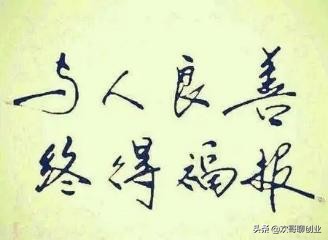 与人良善
终得福报
头条 @欢哥聊创业